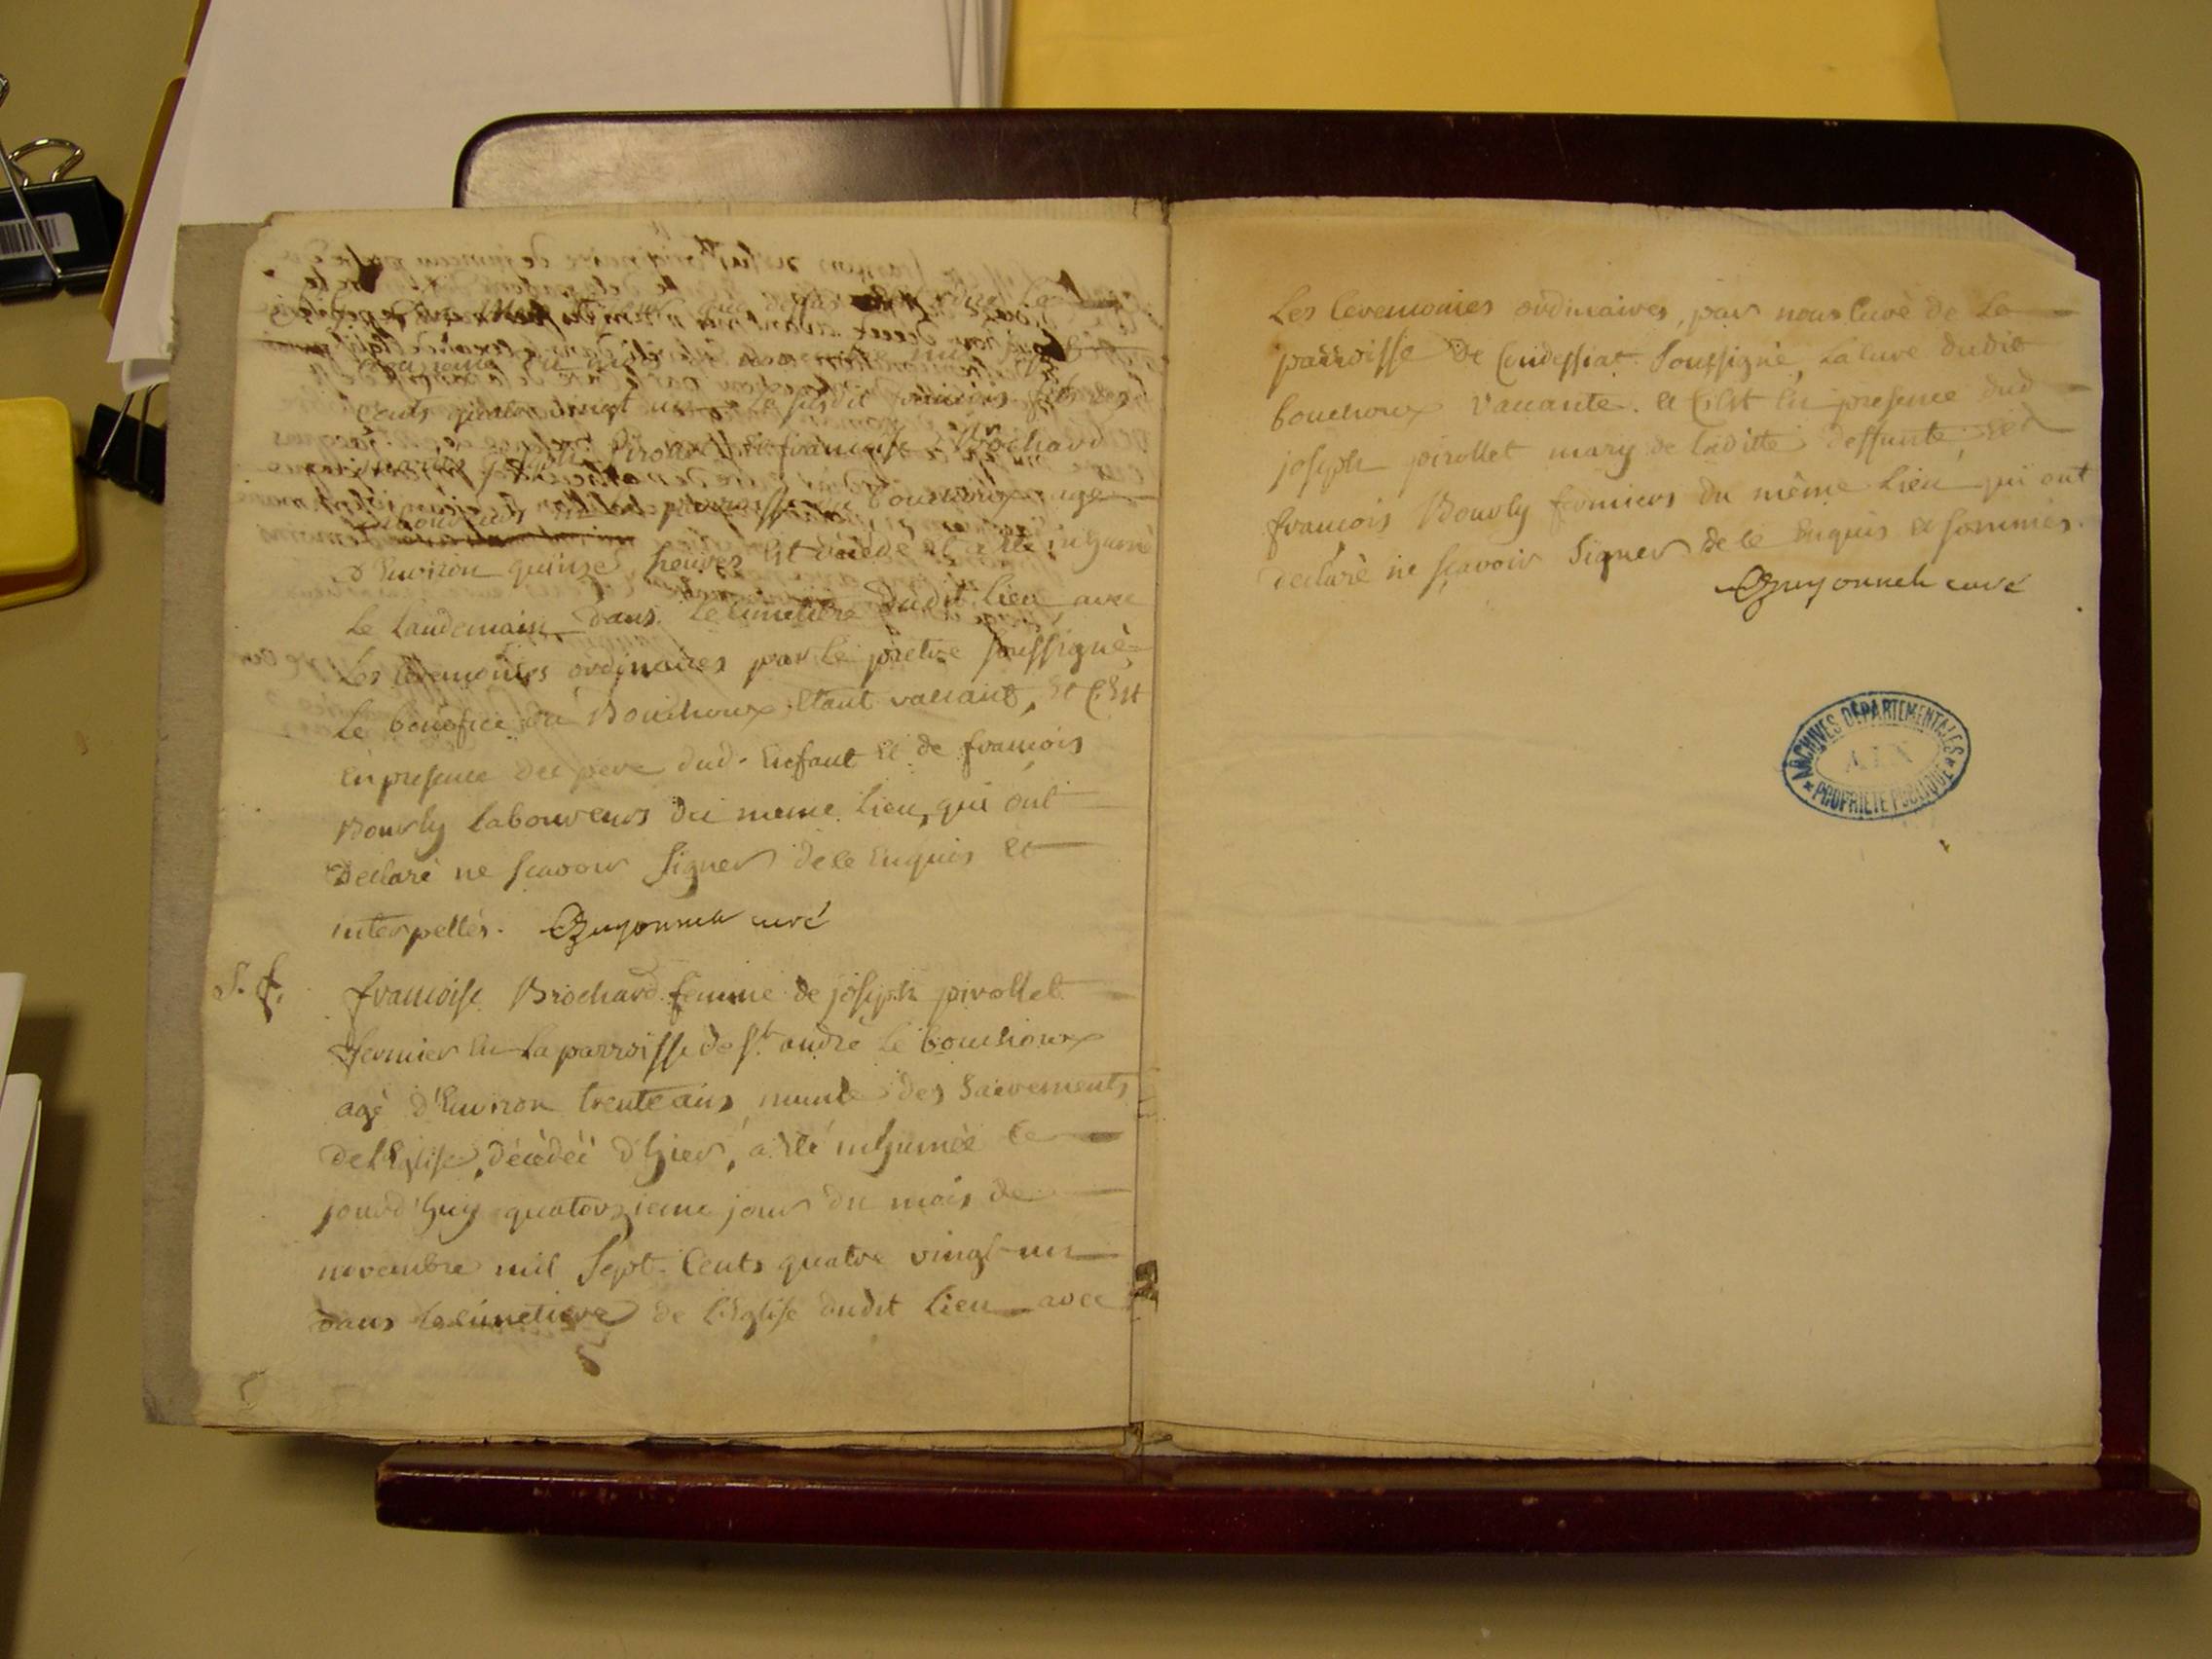 cents quatre vingt un le susdit françois fils de
joseph Pirollet et françoise Brochard
Laboureurs parroisse Bouchoux age
d'Environ quinze heures Est décédé et a été inhumé
le landemain dans le cimetière dudit lieu avec
Les ceremonies ordinaires par le prêtre soussigné
Le bénéfice du Bouchoux Etant vaccant, Et C'Est
En presence du pere dud. Enfant et de francois
Bourly laboureurs du meme lieu, qui ont
Declaré ne scavoir signer de ce Enquis Et
interpellés. Guyonnet curé
S. f.
francoise Brochard femme de joseph pirollet
fermier En La parroisse de St. andré le bouchoux
agé d'Environ trente ans munie des Sacrements
de l'Eglise, décédéé d'hier, a été inhumée ce
jourd'huy quatorzieme jour du mois de
novembre mil Sept Cents quatre vingt un
dans le cimetiere de l'Eglise dudit lieu avec
Les Ceremonies ordinaires, par nous Curé de La
parroisse de Condessiat Soussigné, La Cure dudit
bouchoux Vaccante. et C'Est En presence dud
joseph pirollet mary de laditte deffunte, Et de
francois Bourly fermiers du même Lieu qui ont
declaré ne scavoir Signer de ce Enquis et sommés.
Guyonnet curé
ARCHIVES DÉPARTEMENTALES
AIN
PROPRIÉTÉ PUBLIQUE